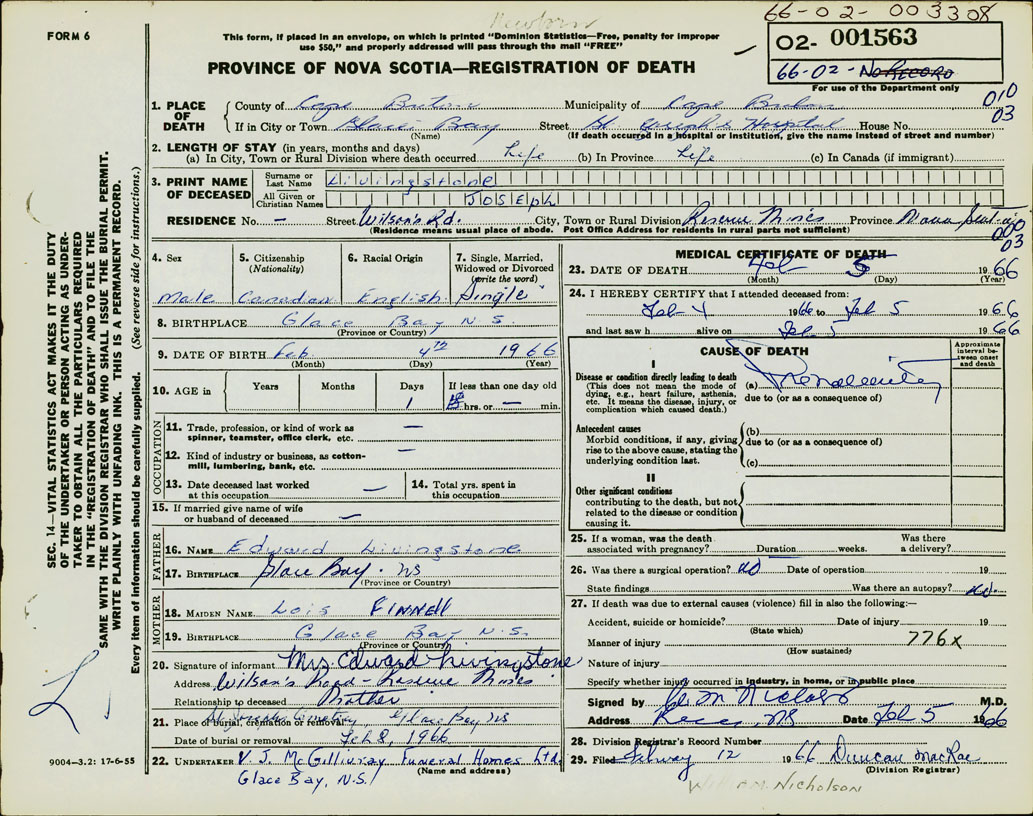 Newborn
66-02-003308
FORM 6
This form, if placed in an envelope, on which is printed "Dominion Statistics—Free, penalty for improper
use $50," and properly addressed will pass through the mail "FREE"
02- 001563
66-02- No Record
PROVINCE OF NOVA SCOTIA—REGISTRATION OF DEATH
For use of the Department only
010
03
1. PLACE OF DEATH
County of Cape Breton Municipality of Cape Breton
If in City or Town Glace Bay Street St. Joseph's Hospital House No.
(Name) (If death occurred in a hospital or institution, give the name instead of street and number)
2. LENGTH OF STAY (in years, months and days)
(a) In City, Town or Rural Division where death occurred Life (b) In Province Life (c) In Canada (if immigrant)
3. PRINT NAME OF DECEASED
Surname or Last Name Livingstone
All Given or Christian Names JOSEPH
RESIDENCE No. — Street Wilson's Rd. City, Town or Rural Division Reserve Mines Province Nova Scotia
(Residence means usual place of abode. Post Office Address for residents in rural parts not sufficient)
000
03
4. Sex Male
5. Citizenship (Nationality) Canadian
6. Racial Origin English
7. Single, Married, Widowed or Divorced (write the word) Single
8. BIRTHPLACE Glace Bay N.S.
(Province or Country)
9. DATE OF BIRTH Feb 4th 1966
(Month) (Day) (Year)
10. AGE in Years Months Days If less than one day old
1 hrs. or — min.
OCCUPATION
11. Trade, profession, or kind of work as spinner, teamster, office clerk, etc. —
12. Kind of industry or business, as cotton-mill, lumbering, bank, etc. —
13. Date deceased last worked at this occupation —
14. Total yrs. spent in this occupation
15. If married give name of wife or husband of deceased —
FATHER
16. NAME Edward Livingstone
17. BIRTHPLACE Glace Bay. NS
(Province or Country)
MOTHER
18. MAIDEN NAME Lois FINNELL
19. BIRTHPLACE Glace Bay N.S.
(Province or Country)
20. Signature of informant Mrs. Edward Livingstone
Address Wilson's Road - Reserve Mines
Relationship to deceased Mother
21. Place of burial, cremation or removal St Joseph Cemetery, Glace Bay NS
Date of burial or removal Feb 8, 1966
22. UNDERTAKER V. J. McGillivray Funeral Homes Ltd.
(Name and address)
Glace Bay, N.S.
MEDICAL CERTIFICATE OF DEATH
23. DATE OF DEATH Feb 5 1966
(Month) (Day) (Year)
24. I HEREBY CERTIFY that I attended deceased from:
Feb 4 1966 to Feb 5 1966
and last saw h alive on Feb 5 1966
CAUSE OF DEATH
Approximate interval between onset and death
I
Disease or condition directly leading to death
(This does not mean the mode of dying, e.g., heart failure, asthenia, etc. It means the disease, injury, or complication which caused death.)
(a) Prematurity
due to (or as a consequence of)
Antecedent causes
Morbid conditions, if any, giving rise to the above cause, stating the underlying condition last.
(b)
due to (or as a consequence of)
(c)
II
Other significant conditions
contributing to the death, but not related to the disease or condition causing it.
25. If a woman, was the death associated with pregnancy? Duration weeks. Was there a delivery?
26. Was there a surgical operation? no Date of operation 19
State findings Was there an autopsy? no.
27. If death was due to external causes (violence) fill in also the following:—
Accident, suicide or homicide? Date of injury 19
(State which)
Manner of injury 776x
(How sustained)
Nature of injury
Specify whether injury occurred in industry, in home, or in public place
Signed by M.D.
Address Date Feb 5 1966
28. Division Registrar's Record Number
29. Filed 12 1966 Duncan MacRae
(Division Registrar)
William Nicholson
SEC. 14—VITAL STATISTICS ACT MAKES IT THE DUTY
OF THE UNDERTAKER OR PERSON ACTING AS UNDER-
TAKER TO OBTAIN ALL THE PARTICULARS REQUIRED
IN THE "REGISTRATION OF DEATH" AND TO FILE THE
SAME WITH THE DIVISION REGISTRAR WHO SHALL ISSUE THE BURIAL PERMIT.
WRITE PLAINLY WITH UNFADING INK. THIS IS A PERMANENT RECORD.
Every item of information should be carefully supplied. (See reverse side for instructions.)
9004—3.2: 17-6-55